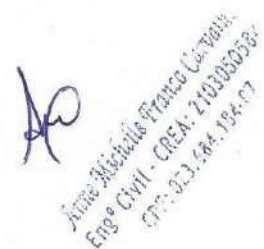 Anne Michelle Franco Carvalho
Engº Civil - CREA: 2103050584
CPF: 023.484.184-07